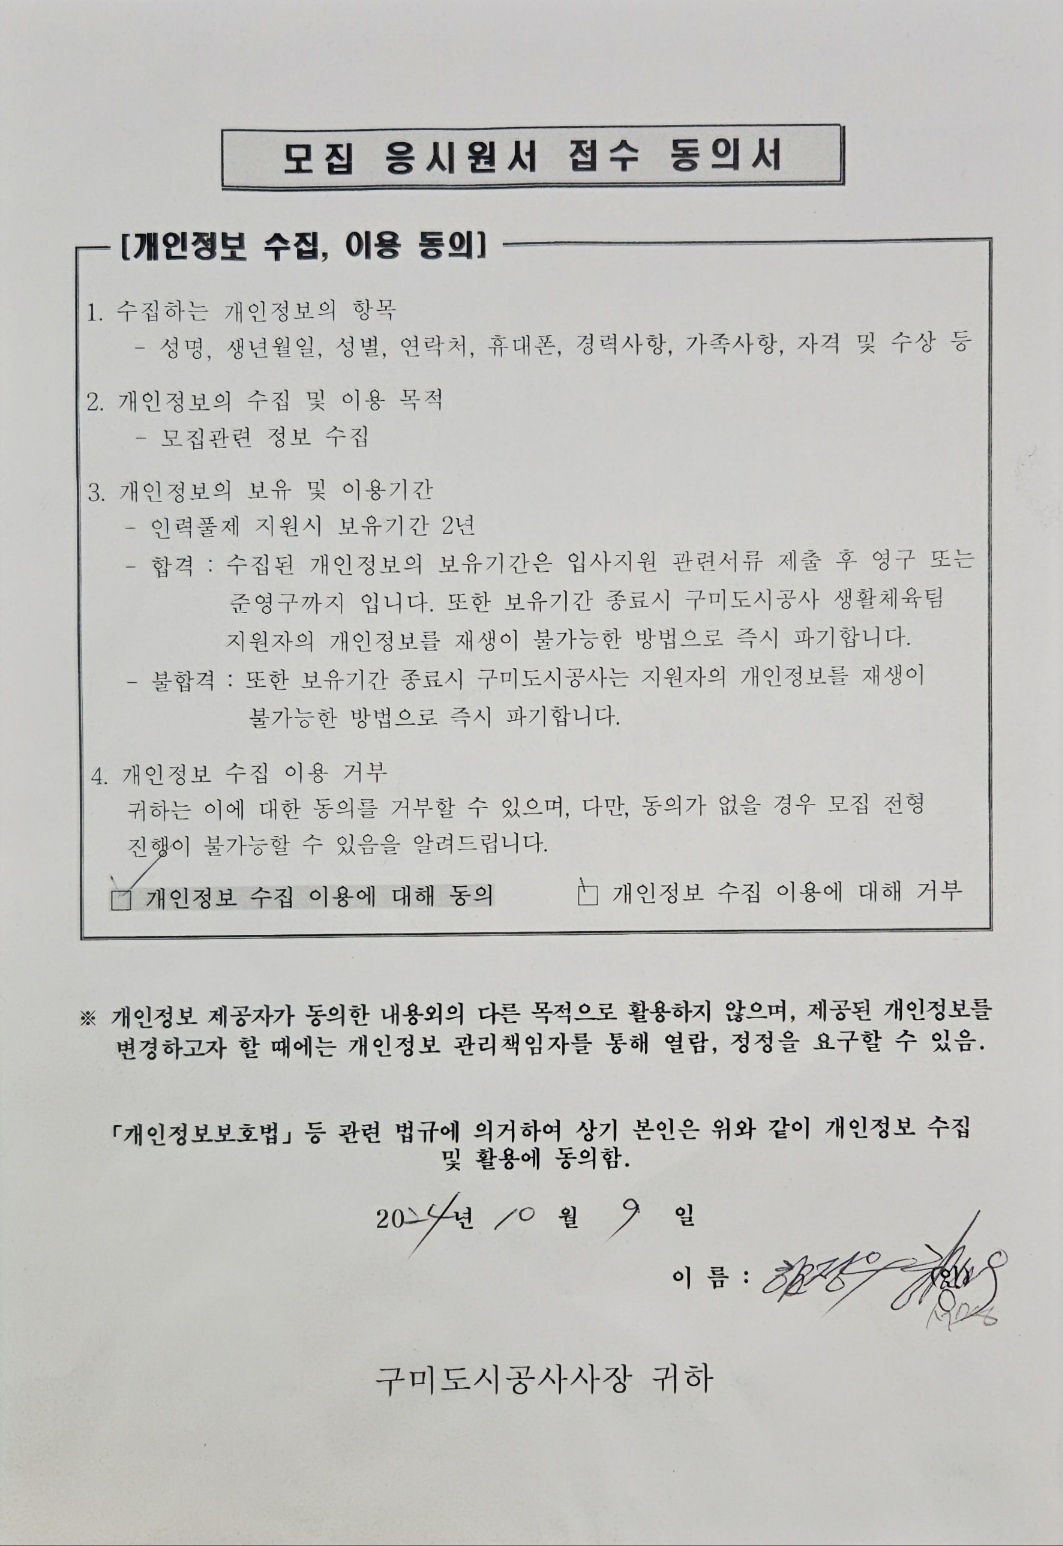 모집 응시원서 접수 동의서
[개인정보 수집, 이용 동의]
1. 수집하는 개인정보의 항목
- 성명, 생년월일, 성별, 연락처, 휴대폰, 경력사항, 가족사항, 자격 및 수상 등
2. 개인정보의 수집 및 이용 목적
- 모집관련 정보 수집
3. 개인정보의 보유 및 이용기간
- 인력풀제 지원시 보유기간 2년
- 합격 : 수집된 개인정보의 보유기간은 입사지원 관련서류 제출 후 영구 또는
준영구까지 입니다. 또한 보유기간 종료시 구미도시공사 생활체육팀
지원자의 개인정보를 재생이 불가능한 방법으로 즉시 파기합니다.
- 불합격 : 또한 보유기간 종료시 구미도시공사는 지원자의 개인정보를 재생이
불가능한 방법으로 즉시 파기합니다.
4. 개인정보 수집 이용 거부
귀하는 이에 대한 동의를 거부할 수 있으며, 다만, 동의가 없을 경우 모집 전형
진행이 불가능할 수 있음을 알려드립니다.
□ 개인정보 수집 이용에 대해 동의 □ 개인정보 수집 이용에 대해 거부
※ 개인정보 제공자가 동의한 내용외의 다른 목적으로 활용하지 않으며, 제공된 개인정보를
변경하고자 할 때에는 개인정보 관리책임자를 통해 열람, 정정을 요구할 수 있음.
「개인정보보호법」 등 관련 법규에 의거하여 상기 본인은 위와 같이 개인정보 수집
및 활용에 동의함.
2024년 10 월 9 일
이 름 : (인)
구미도시공사사장 귀하